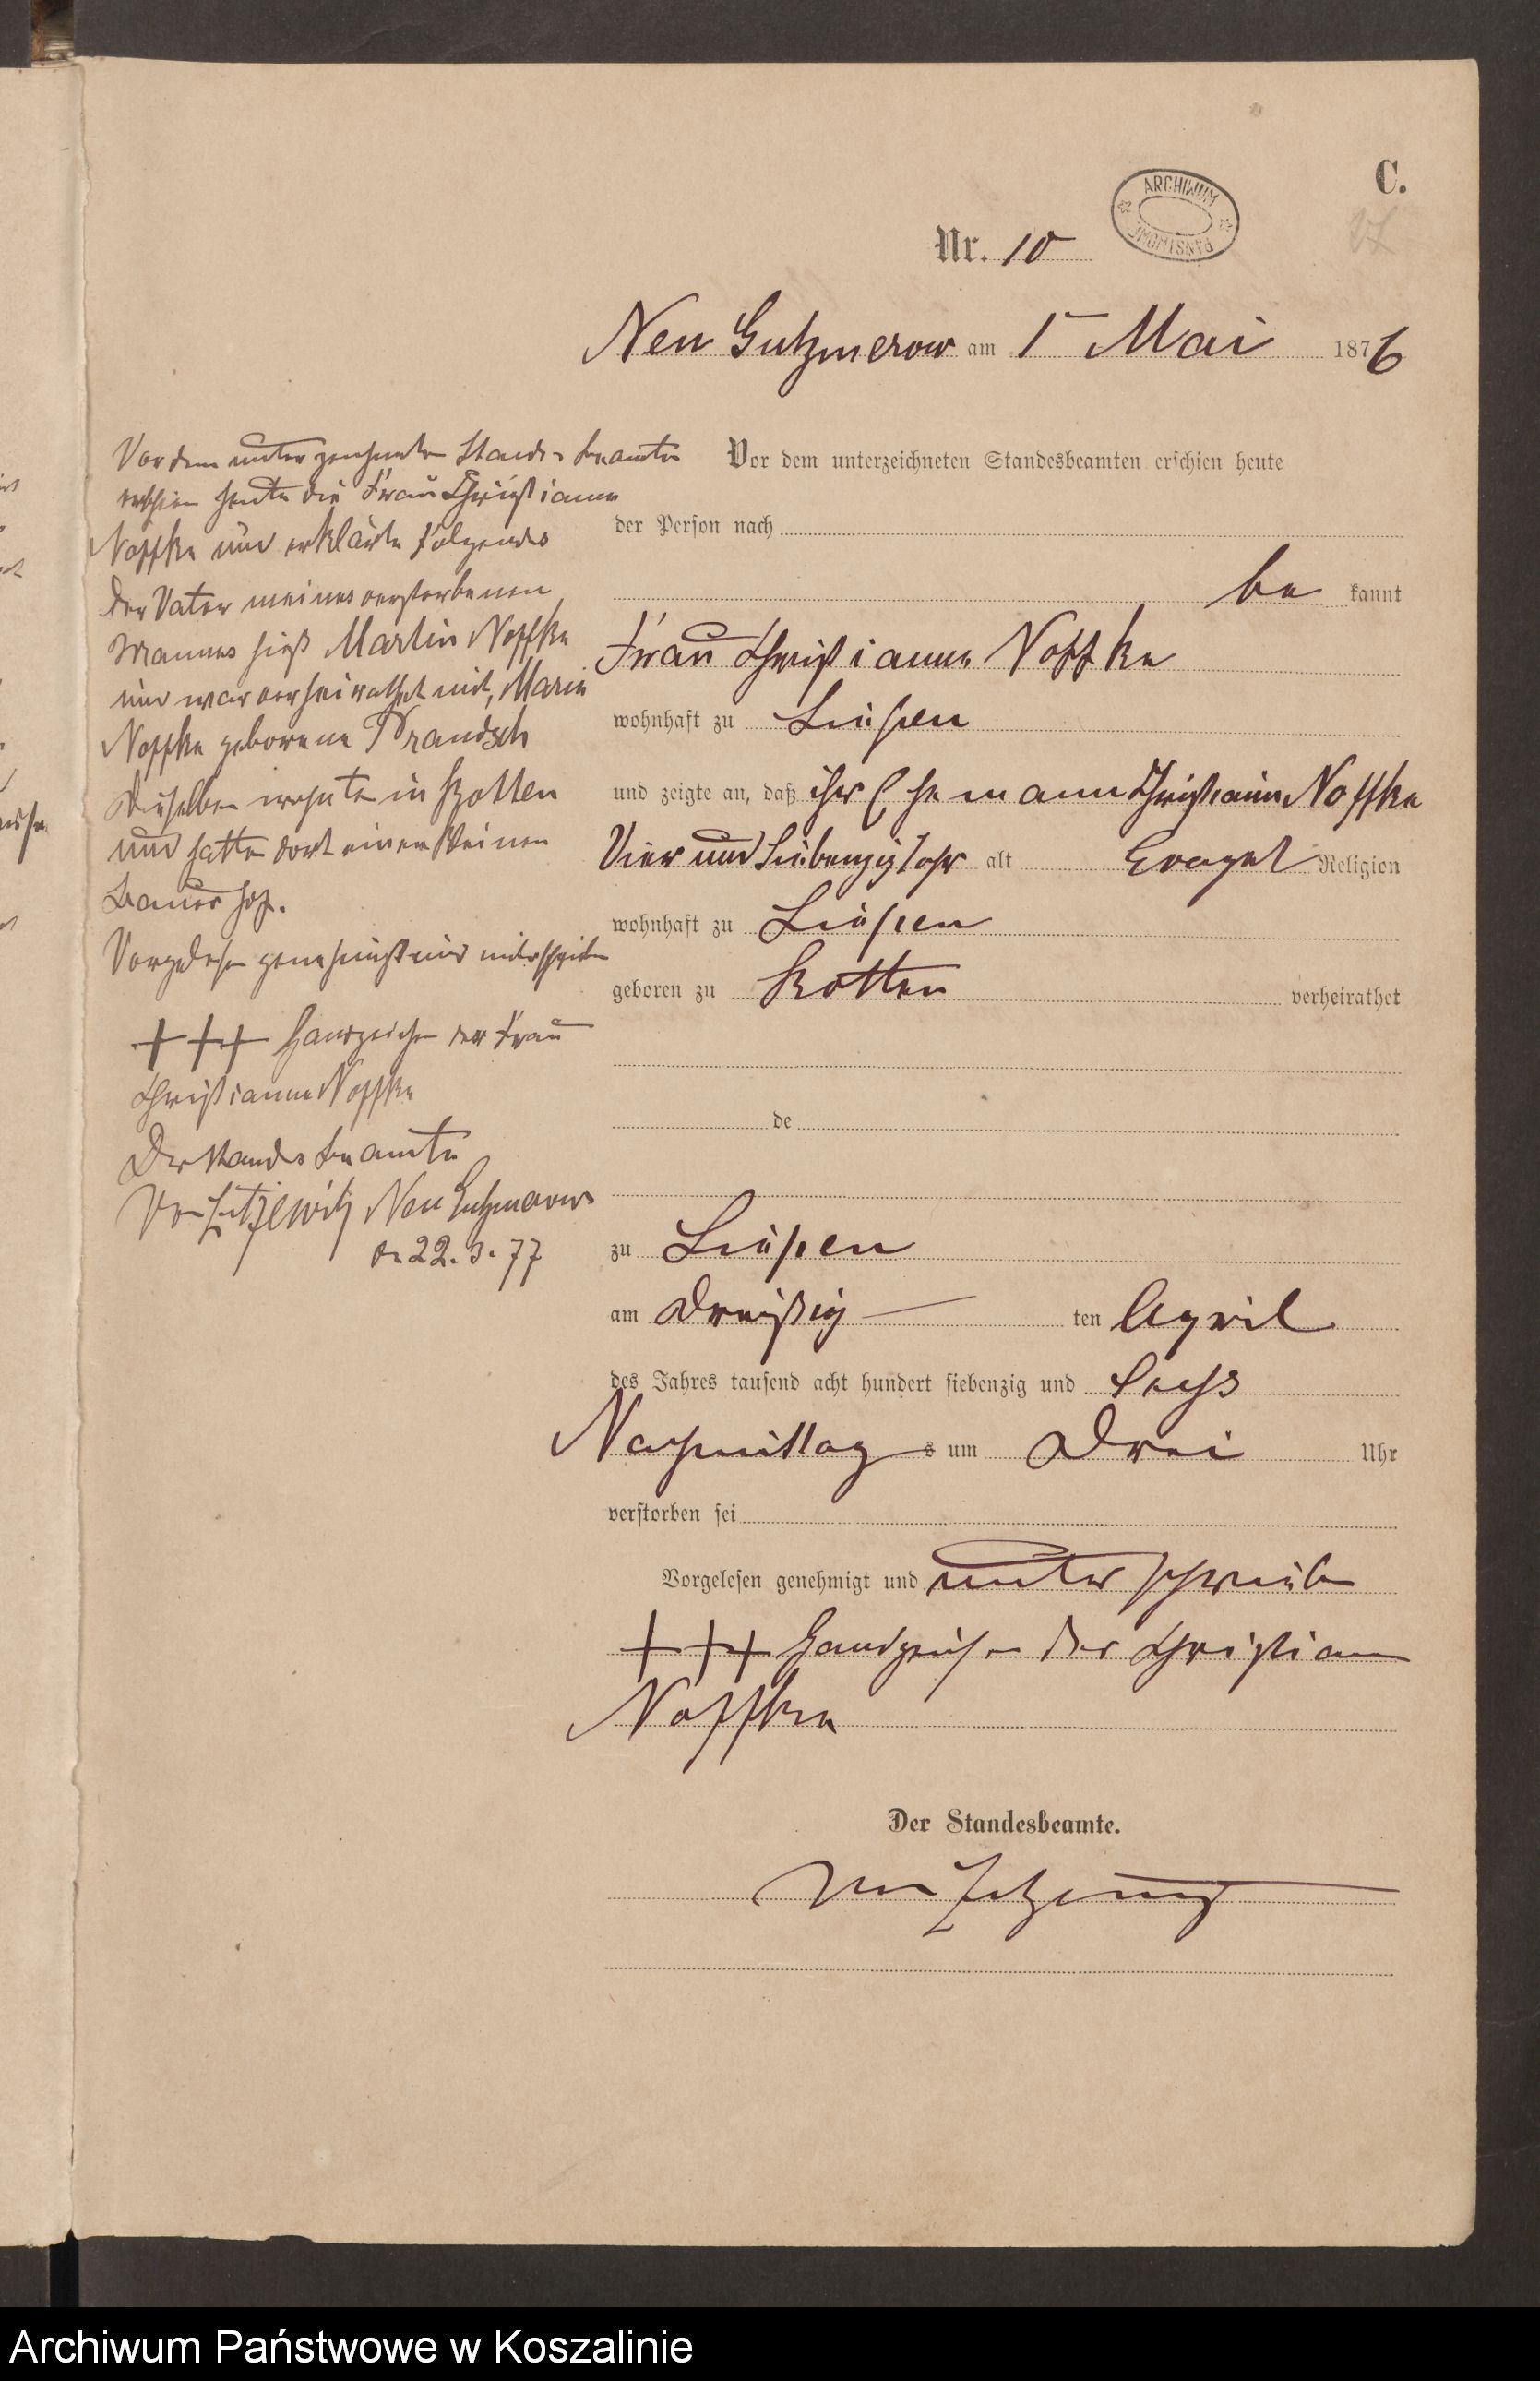 C.
ARCHIWUM
PAŃSTWOWE
27
Nr. 10
Neu Gutzmerow am 1 Mai 1876
Vor dem unterzeichneten Standesbeamten erschien heute
der Person nach
be kannt
Frau Christianne Noffke
wohnhaft zu Lüssen
und zeigte an, daß ihr Ehemann Christian Noffke
Vier und Siebenzig Jahr alt Evangel Religion
wohnhaft zu Lüssen
geboren zu Rotten verheirathet
de
zu Lüssen
am Dreißig ten April
des Jahres tausend acht hundert siebenzig und Sechs
Nachmittag s um Drei Uhr
verstorben sei
Vorgelesen genehmigt und unterschrieben
+++ Handzeichen der Christian
Noffken
Der Standesbeamte.
Vor dem unterzeichneten Standesbeamten
erschien heute die Frau Christianne
Noffke und erklärte folgendes
Der Vater meines verstorbenen
Mannes hieß Martin Noffke
und war verheirathet mit, Marie
Noffke geborene Prandsch
Dieselben wohnten in Rotten
und hatten dort einen kleinen
Bauerhof.
Vorgelesen genehmigt und unterschrieben
+++ Handzeichen der Frau
Christianne Noffke
Der Standesbeamte
Von Zitzewitz Neu Gutzmerow
d. 22. 3. 77
Archiwum Państwowe w Koszalinie